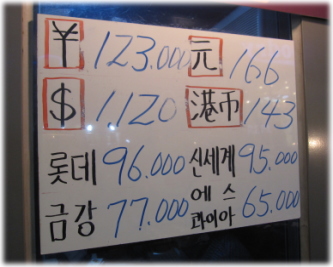 ¥ 123.000 元 166
$ 1120 港币 143
롯데 96.000 신세계 95.000
금강 77.000 에스콰이아 65.000